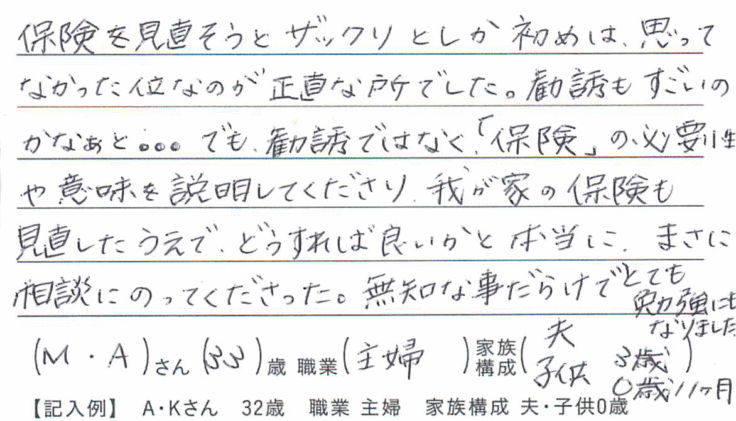 保険を見直そうとザックリとしか初めは、思って
なかった位なのが正直な所でした。勧誘もすごいの
かなぁと。。。でも、勧誘ではなく、「保険」の必要性
や意味を説明してくださり、我が家の保険も
見直したうえで、どうすれば良いかと本当に、まさに
相談にのってくださった。無知な事だらけでとても
勉強にも
なりました
(M・A)さん(33)歳 職業(主婦)家族構成(夫
子供 3歳
0歳11ヶ月)
【記入例】 A・Kさん 32歳 職業 主婦 家族構成 夫・子供0歳